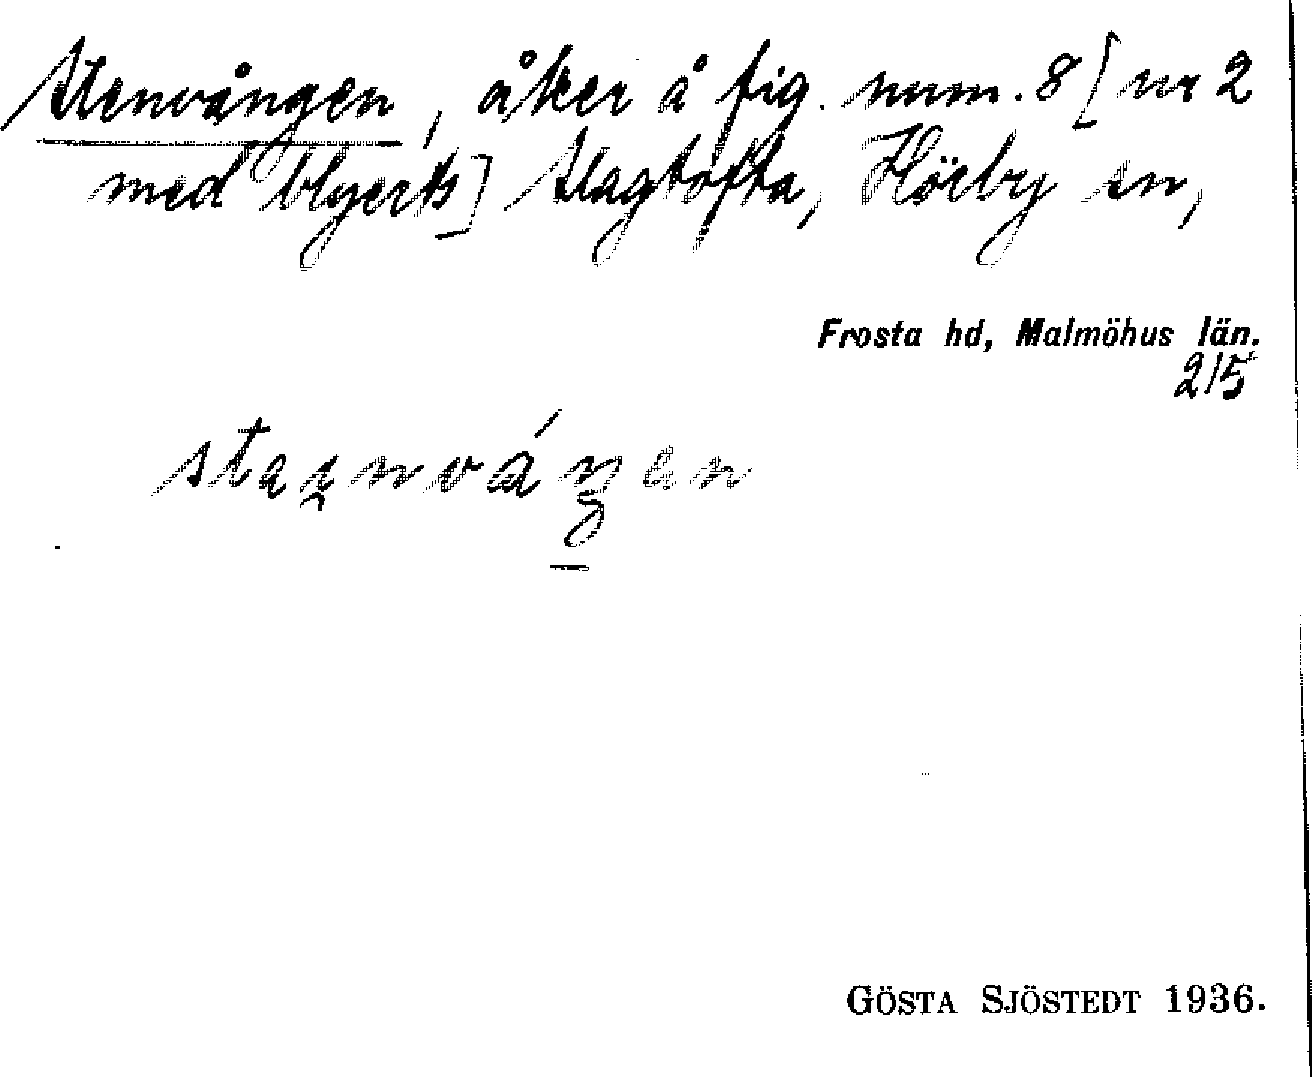 Stenvången, åker å fig. num. 8 [nr 2
med blyerts] Slagtofta, Hörby sn,
Frosta hd, Malmöhus län.
215
GÖSTA SJÖSTEDT 1936.